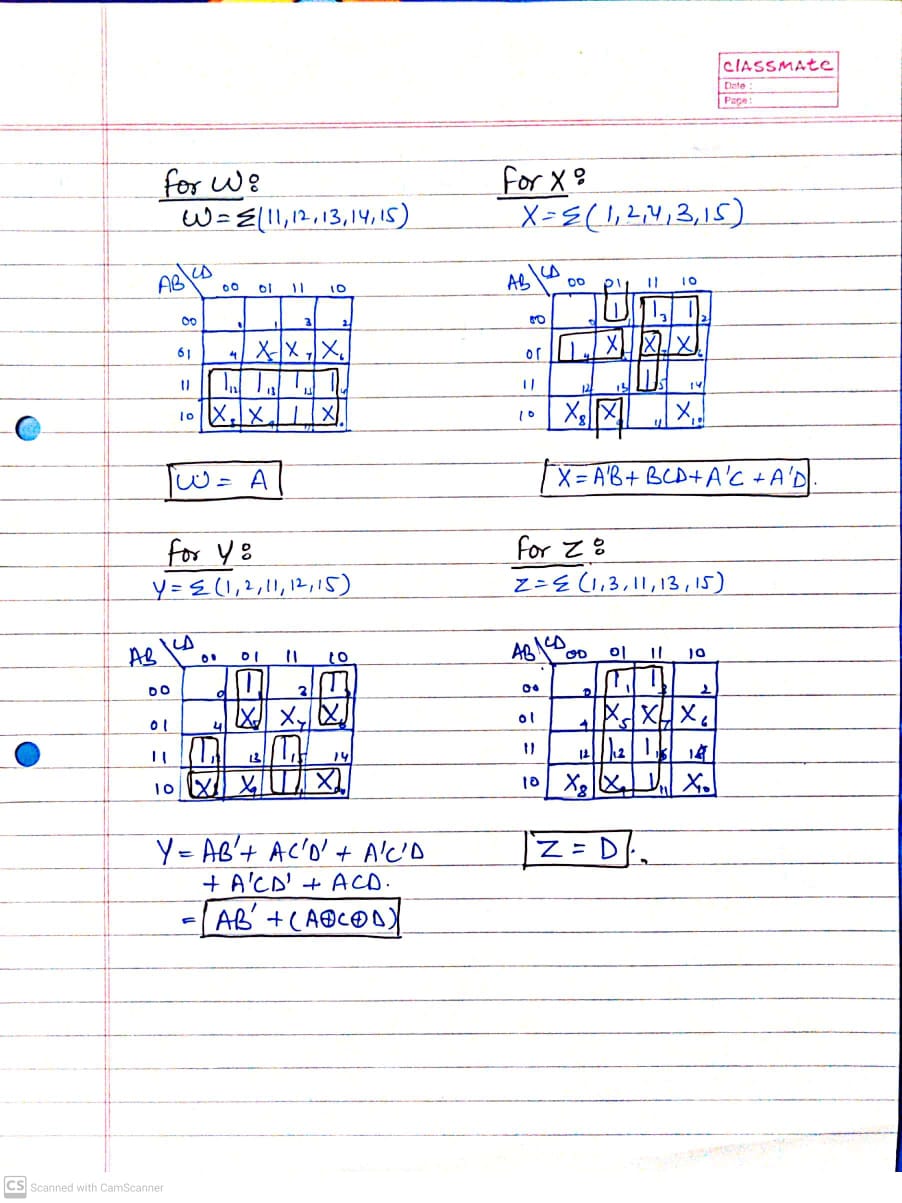 CLASSMATE
Date :
Page :
for W :
W = Σ(11,12,13,14,15)
AB\CD 00 01 11 10
00 0 1 3 2
01 4 X5 X7 X6
11 1 12 1 13 1 15 1 14
10 X8 X 1 X
W = A
For X :
X = Σ(1,2,4,3,15)
AB\CD 00 01 11 10
00 0 1 1 3 1 2
01 1 4 X X7 X6
11 12 13 1 15 14
10 X8 X9 11 X10
X = A'B + BCD + A'C + A'D.
for Y :
Y = Σ(1,2,11,12,15)
AB\CD 00 01 11 10
00 0 1 3 1
01 4 X5 X7 X6
11 1 12 13 1 15 14
10 X8 X9 1 X10
Y = AB' + AC'D' + A'C'D
+ A'CD' + ACD.
= AB' + (A⊕C⊕D)
For Z :
Z = Σ(1,3,11,13,15)
AB\CD 00 01 11 10
00 0 1 1 1 3 2
01 4 X5 X7 X6
11 12 1 13 1 15 14
10 X8 X9 1 11 X10
Z = D.
CS Scanned with CamScanner